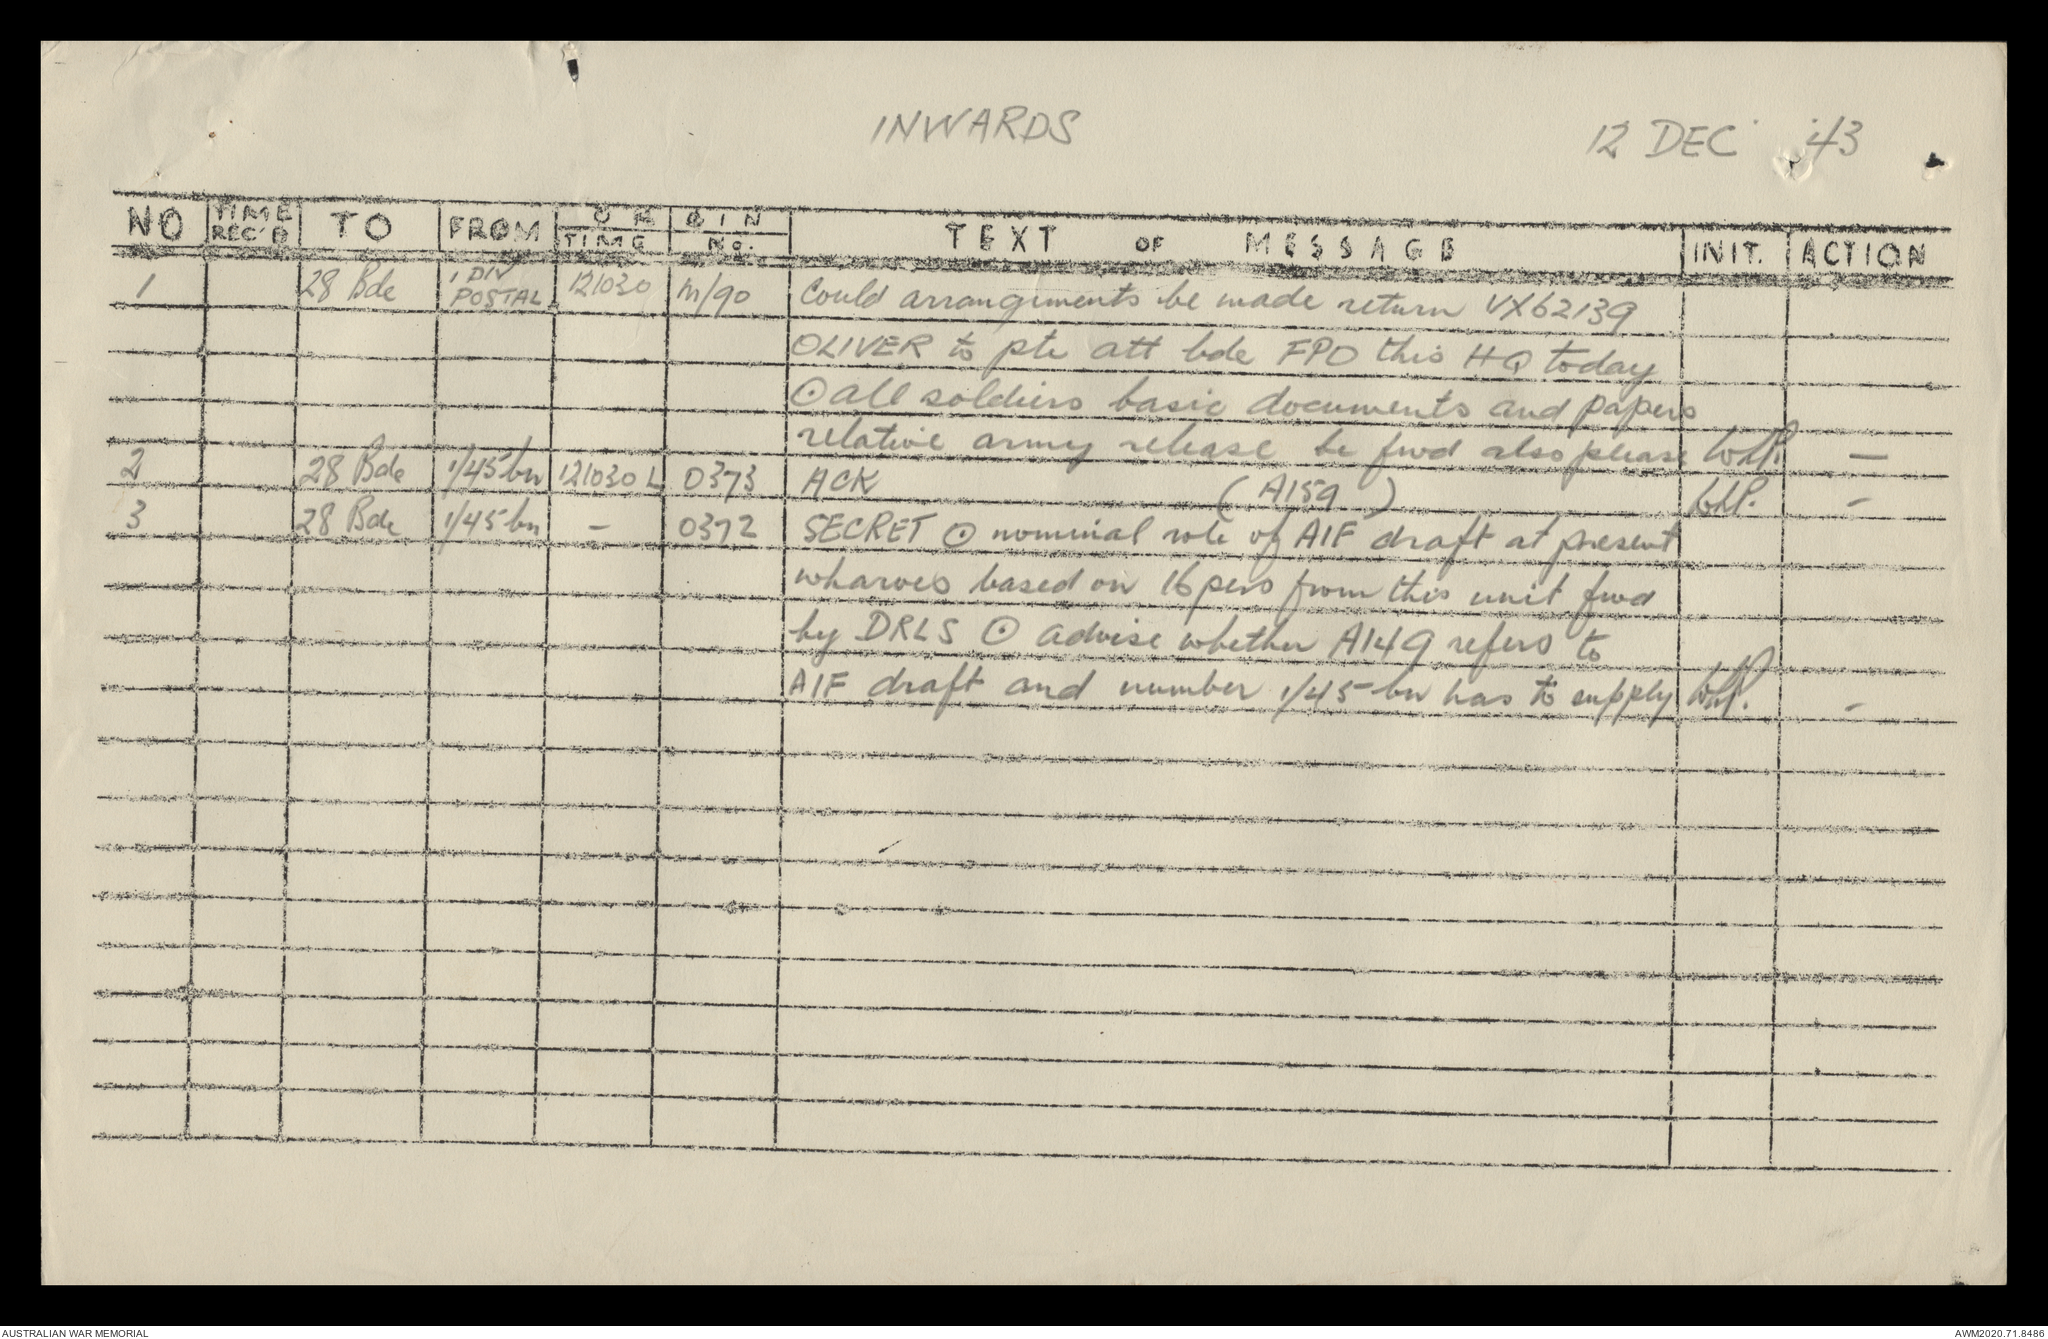 INWARDS
12 DEC '43
NO TIME REC'D TO FROM ORIGIN TIME No. TEXT OF MESSAGE INIT. ACTION
1 28 Bde 1 DIV POSTAL 121030 M/90 Could arrangements be made return VX62139
OLIVER to pte att bde FPO this HQ today
⊙ all soldiers basic documents and papers
relative army release be fwd also please WHP. —
2 28 Bde 1/45 bn 121030 L 0373 ACK (A159) WHP. -
3 28 Bde 1/45 bn - 0372 SECRET ⊙ nominal role of AIF draft at present
wharves based on 16 pers from this unit fwd
by DRLS ⊙ advise whether A149 refers to
AIF draft and number 1/45 bn has to supply WHP. -
AUSTRALIAN WAR MEMORIAL
AWM2020.71.8486